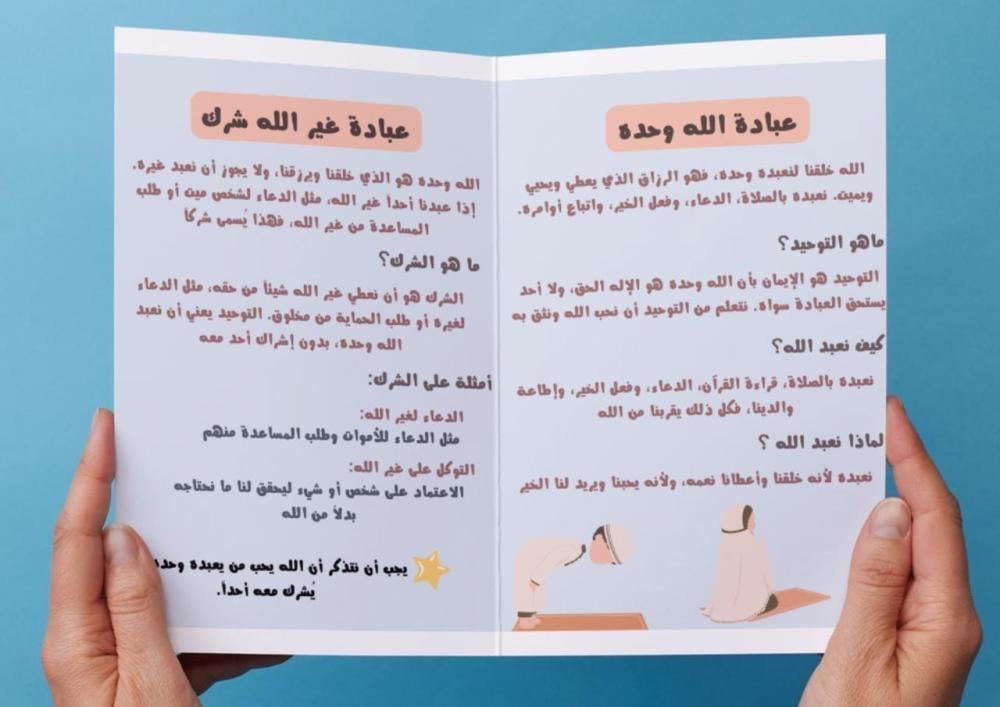 عبادة الله وحده
الله خلقنا لنعبدة وحدة، فهو الرزاق الذي يعطي ويحيي
ويميت. نعبدة بالصلاة، الدعاء، وفعل الخير، واتباع أوامرة.
ماهو التوحيد؟
التوحيد هو الإيمان بأن الله وحدة هو الإله الحق، ولا أحد
يستحق العبادة سواة. نتعلم من التوحيد أن نحب الله ونثق به
كيف نعبد الله؟
نعبدة بالصلاة، قراءة القرآن، الدعاء، وفعل الخير، وإطاعة
والدينا، فكل ذلك يقربنا من الله
لماذا نعبد الله ؟
نعبدة لأنه خلقنا وأعطانا نعمه، ولأنه يحبنا ويريد لنا الخير
عبادة غير الله شرك
الله وحدة هو الذي خلقنا ويرزقنا، ولا يجوز أن نعبد غيرة.
إذا عبدنا أحداً غير الله، مثل الدعاء لشخص ميت أو طلب
المساعدة من غير الله، فهذا يُسمى شركاً
ما هو الشرك؟
الشرك هو أن نعطي غير الله شيئاً من حقه، مثل الدعاء
لغيرة أو طلب الحماية من مخلوق. التوحيد يعني أن نعبد
الله وحدة، بدون إشراك أحد معه
أمثلة على الشرك:
الدعاء لغير الله:
مثل الدعاء للأموات وطلب المساعدة منهم
التوكل على غير الله:
الاعتماد على شخص أو شيء ليحقق لنا ما نحتاجه
بدلاً من الله
يجب أن نتذكر أن الله يحب من يعبدة وحدة
يُشرك معه أحداً.